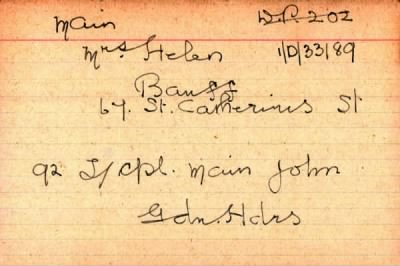 Main D.P. 202
Mrs. Helen 1/D/33189
Banff
67. St. Catherines St
92 L/Cpl. Main John
Gdn. Hdrs